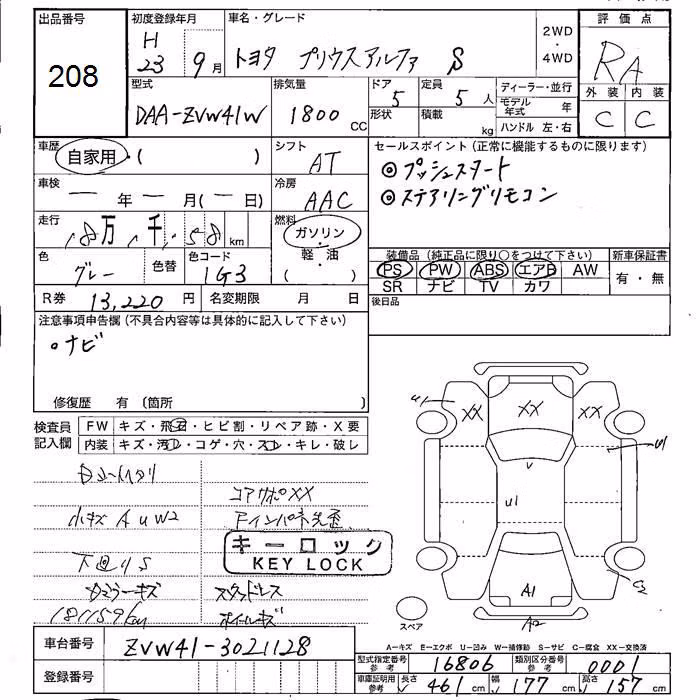 出品番号
208
初度登録年月
H
23 9月
車名・グレード
トヨタ プリウスアルファ S
2WD
・
4WD
評価点
RA
外装 内装
C C
型式
DAA-ZVW41W
排気量
1800 CC
ドア
5
形状
定員
5 人
積載
kg
ディーラー・並行
モデル年式 年
ハンドル 左・右
車歴
自家用・( )
シフト
AT
車検
― 年 ― 月(― 日)
冷房
AAC
走行
18万1千158km
燃料
ガソリン
・
軽・油
( )
色
グレー
色替
色コード
1G3
R券 13,220 円
名変期限 月 日
セールスポイント(正常に機能するものに限ります)
◎プッシュスタート
◎ステアリングリモコン
装備品(純正品に限り○をつけて下さい)
PS PW ABS エアB AW
SR ナビ TV カワ
新車保証書
有・無
後日品
注意事項申告欄(不具合内容等は具体的に記入して下さい)
○ナビ
修復歴 有(箇所
検査員記入欄
FW キズ・飛石・ヒビ割・リペア跡・X要
内装 キズ・汚れ・コゲ・穴・スレ・キレ・破レ
コアサポXX
小キズ A U W2
下回りS
キーロック
KEY LOCK
スタッドレス
ホイールキズ
181159km
XX
XX
XX
U1
U1
V
C2
A1
A2
スペア
A−キズ E−エクボ U−凹み W−補修跡 S−サビ C−腐食 XX−交換済
車台番号
ZVW41-3021128
登録番号
型式指定番号
参考
16806
類別区分番号
参考
0001
車庫証明用
参考
長さ 461 cm
幅 177 cm
高さ 157 cm